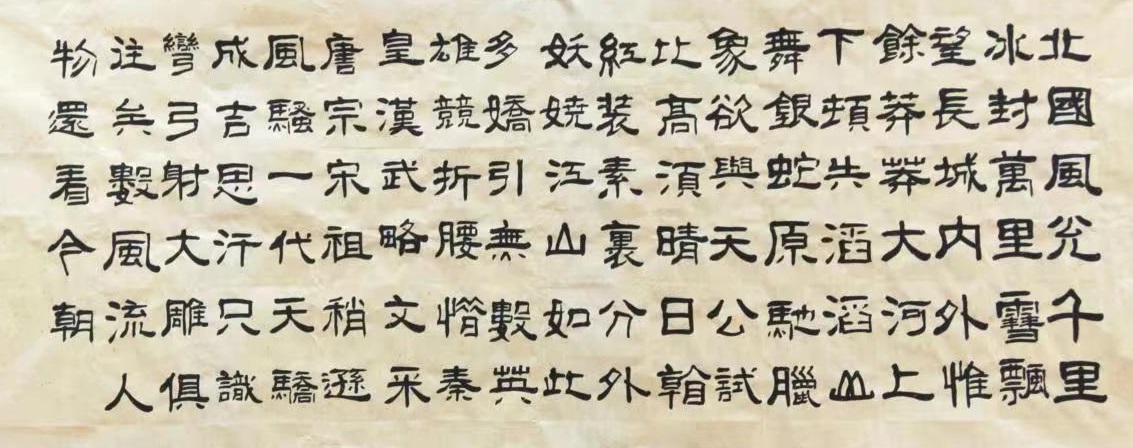 北國風光千里
冰封萬里雪飄
望長城內外惟
餘莽莽大河上
下頓失滔滔山
舞銀蛇原馳臘
象欲與天公試
比高須晴日看
紅裝素裹分外
妖嬈江山如此
多嬌引無數英
雄競折腰惜秦
皇漢武略文采
唐宗宋祖稍遜
風騷一代天驕
成吉思汗只識
彎弓射大雕俱
往矣數風流人
物還看今朝